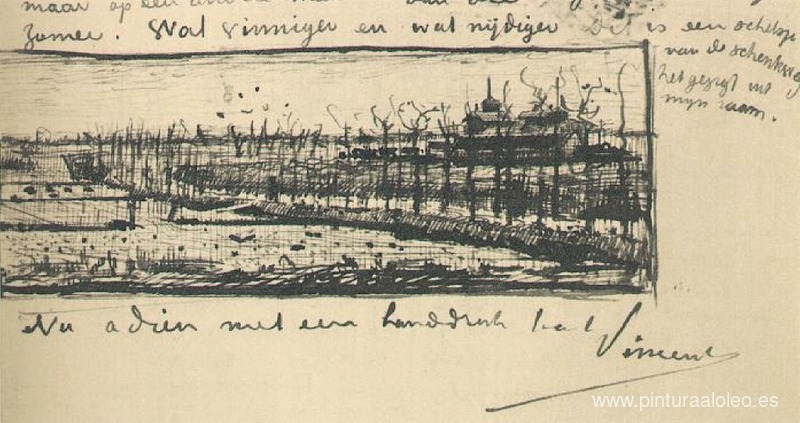 maar op een
zomer. Wat vinniger en wat nijdiger
Dit is een schetsje
van de schenkweg
het gezigt uit
mijn raam.
Nu adieu met een handdruk
Vincent
www.pinturaaloleo.es